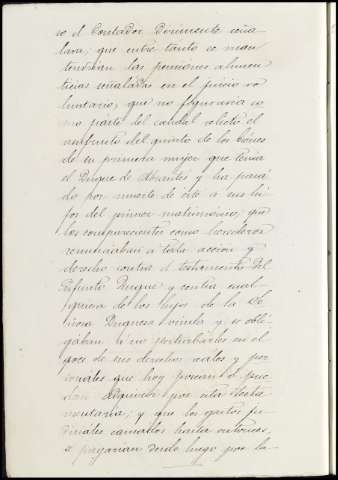 so el Contador Dirimente seña
lara; que entre tanto se man
tendrian las pensiones alimen
ticias señaladas en el juicio vo
luntario; que no figuraria co
mo parte del caudal relicto el
usufructo del quinto de los bienes
de su primera mujer que tenia
el Duque de Abrantes y ha pasa
do por muerte de este a sus hi
jos del primer matrimonio; que
los comparecientes como herederos
renunciaban a toda accion y
derecho contra el testamento del
difunto Duque y contra cual
quiera de los hijos de la Se
ñora Duquesa viuda y se obli
gaban a no perturbarles en el
goce de sus derechos reales y per
sonales que hoy posean o pue
dan adquirir por esta testa
mentaria; y que los gastos ju
diciales causados hasta entonces,
se pagarian desde luego por la